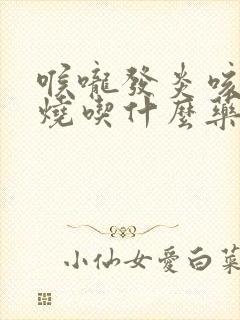 喉嚨發炎咳
燒喫什麼藥
小仙女愛白菜